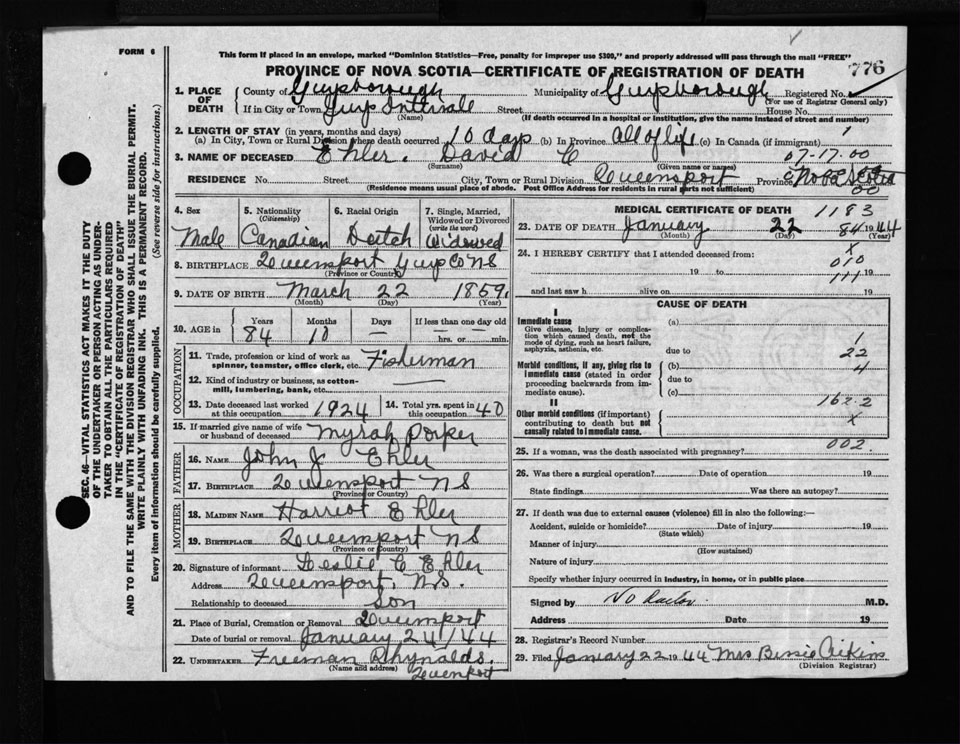 FORM 6
This form if placed in an envelope, marked "Dominion Statistics—Free, penalty for improper use $300," and properly addressed will pass through the mail "FREE"
PROVINCE OF NOVA SCOTIA—CERTIFICATE OF REGISTRATION OF DEATH 776
SEC. 46—VITAL STATISTICS ACT MAKES IT THE DUTY
OF THE UNDERTAKER OR PERSON ACTING AS UNDER-
TAKER TO OBTAIN ALL THE PARTICULARS REQUIRED
IN THE "CERTIFICATE OF REGISTRATION OF DEATH"
AND TO FILE THE SAME WITH THE DIVISION REGISTRAR WHO SHALL ISSUE THE BURIAL PERMIT.
WRITE PLAINLY WITH UNFADING INK. THIS IS A PERMANENT RECORD.
Every item of Information should be carefully supplied. (See reverse side for instructions.)
1. PLACE OF DEATH County of Guysborough Municipality of Guysborough Registered No.
(For use of Registrar General only)
If in City or Town Guys Intervale Street House No.
(Name) (If death occurred in a hospital or institution, give the name instead of street and number)
2. LENGTH OF STAY (in years, months and days)
(a) In City, Town or Rural Division where death occurred 10 days (b) In Province All of life (c) In Canada (if immigrant) 1
3. NAME OF DECEASED Ehler. David C 07-17.00
(Surname) (Given name or names)
RESIDENCE No. Street City, Town or Rural Division Queensport Province Nova Scotia
(Residence means usual place of abode. Post Office Address for residents in rural parts not sufficient) 00
4. Sex Male
5. Nationality (Citizenship) Canadian
6. Racial Origin Dutch
7. Single, Married, Widowed or Divorced (write the word) Widowed
8. BIRTHPLACE Queensport Guys Co NS
(Province or Country)
9. DATE OF BIRTH March 22 1859.
(Month) (Day) (Year)
10. AGE in Years 84 Months 10 Days — If less than one day old — hrs. or — min.
OCCUPATION
11. Trade, profession or kind of work as spinner, teamster, office clerk, etc. Fisherman
12. Kind of industry or business, as cotton-mill, lumbering, bank, etc. —
13. Date deceased last worked at this occupation 1924
14. Total yrs. spent in this occupation 40
15. If married give name of wife or husband of deceased Myrah
FATHER
16. Name John J Ehler
17. Birthplace Queensport N S
(Province or Country)
MOTHER
18. Maiden Name Harriot Ehler
19. Birthplace Queensport N S
(Province or Country)
20. Signature of informant Leslie C Ehler
Address Queensport, N.S.
Relationship to deceased Son
21. Place of Burial, Cremation or Removal Queensport
Date of burial or removal January 24/44
22. Undertaker Freeman Rhynalds.
(Name and address) Queensport
MEDICAL CERTIFICATE OF DEATH 1183
23. DATE OF DEATH January 22 84 1944
(Month) (Day) (Year)
24. I HEREBY CERTIFY that I attended deceased from: X
19 to 010 19
and last saw h alive on 111 19
CAUSE OF DEATH
I
Immediate cause (a)
Give disease, injury or complication which caused death, not the mode of dying, such as heart failure, asphyxia, asthenia, etc. 1
due to 22
Morbid conditions, if any, giving rise to immediate cause (stated in order proceeding backwards from immediate cause). (b) 4
due to
(c)
II 162.2
Other morbid conditions (if important) contributing to death but not causally related to immediate cause. X
25. If a woman, was the death associated with pregnancy? 002.
26. Was there a surgical operation? Date of operation 19
State findings Was there an autopsy?
27. If death was due to external causes (violence) fill in also the following:—
Accident, suicide or homicide? Date of injury 19
(State which)
Manner of injury
(How sustained)
Nature of injury
Specify whether injury occurred in industry, in home, or in public place
Signed by No Doctor. M.D.
Address Date 19
28. Registrar's Record Number
29. Filed January 22 1944 Mrs Bessie Aikins
(Division Registrar)